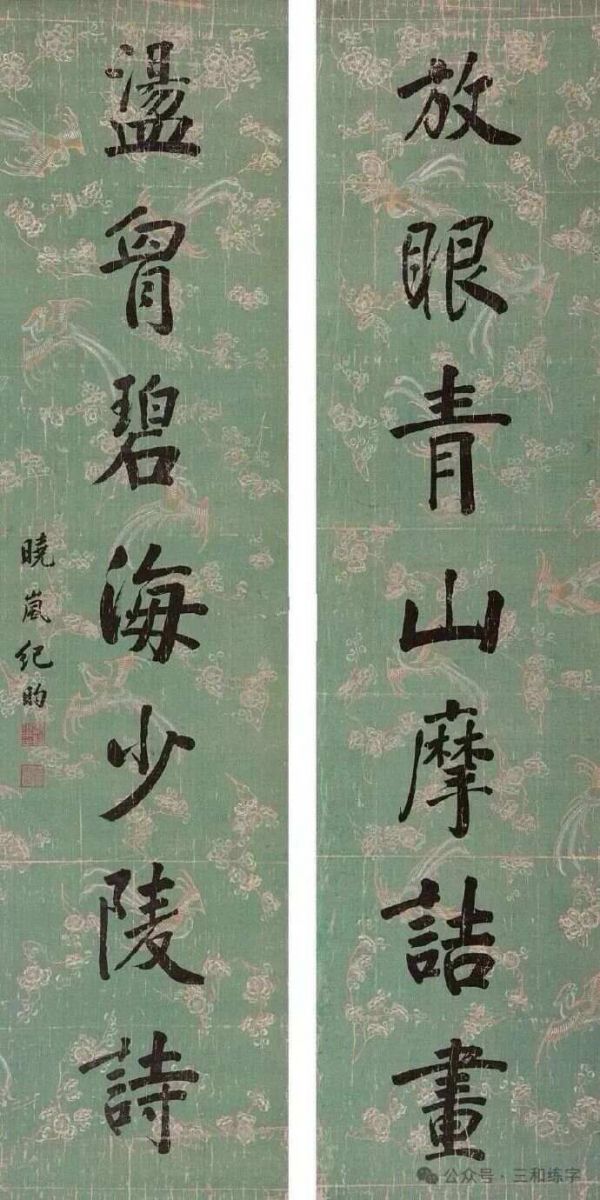 放眼青山摩詰畫
盪胷碧海少陵詩
曉嵐紀昀
公众号·三和练字